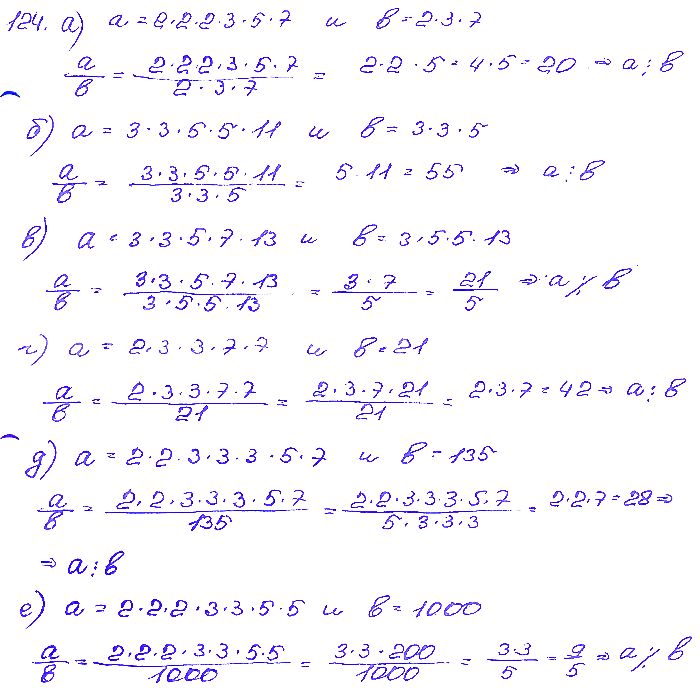 124. а) a = 2·2·2·3·5·7 и b = 2·3·7
a/b = 2·2·2·3·5·7/2·3·7 = 2·2·5 = 4·5 = 20 ⇒ a⋮b
б) a = 3·3·5·5·11 и b = 3·3·5
a/b = 3·3·5·5·11/3·3·5 = 5·11 = 55 ⇒ a⋮b
в) a = 3·3·5·7·13 и b = 3·5·5·13
a/b = 3·3·5·7·13/3·5·5·13 = 3·7/5 = 21/5 ⇒ a⋮̸b
г) a = 2·3·3·7·7 и b = 21
a/b = 2·3·3·7·7/21 = 2·3·7·21/21 = 2·3·7 = 42 ⇒ a⋮b
д) a = 2·2·3·3·3·5·7 и b = 135
a/b = 2·2·3·3·3·5·7/135 = 2·2·3·3·3·5·7/5·3·3·3 = 2·2·7 = 28 ⇒
⇒ a⋮b
е) a = 2·2·2·3·3·5·5 и b = 1000
a/b = 2·2·2·3·3·5·5/1000 = 3·3·200/1000 = 3·3/5 = 9/5 ⇒ a⋮̸b